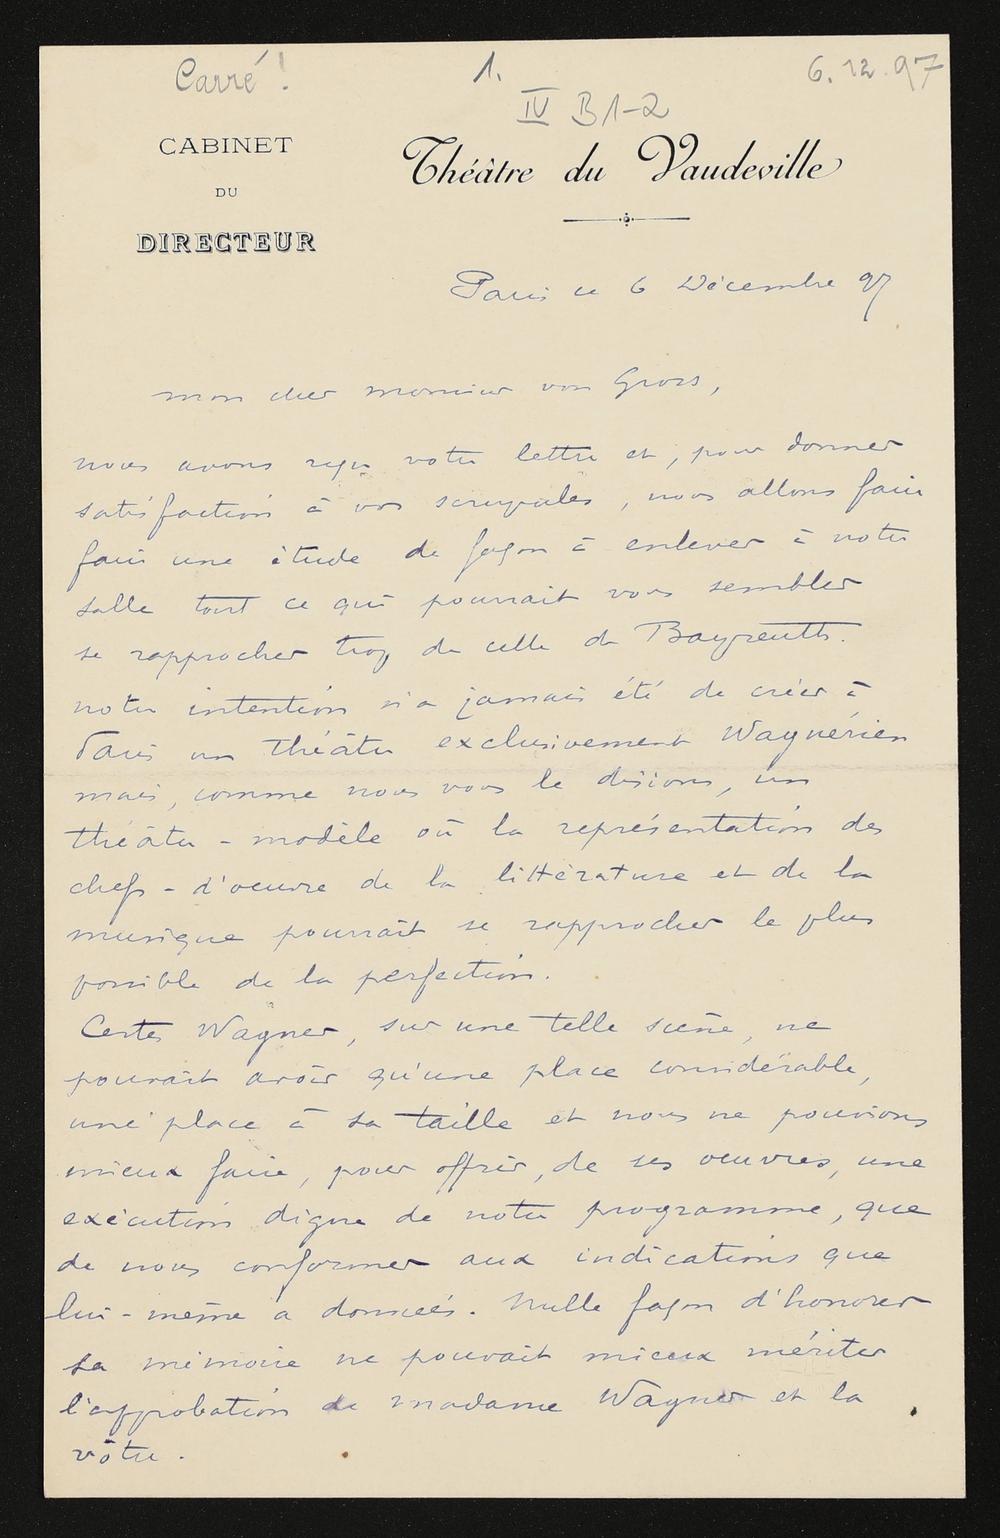 Carré!
1.
6.12.97
IV B1-2
CABINET
DU
DIRECTEUR
Théâtre du Vaudeville
Paris ce 6 Décembre 97
mon cher monsieur von Gross,
nous avons reçu votre lettre et, pour donner
satisfaction à vos scrupules, nous allons faire
faire une étude de façon à enlever à notre
salle tout ce qui pourrait vous sembler
se rapprocher trop de celle de Bayreuth.
notre intention n'a jamais été de créer à
Paris un théâtre exclusivement Wagnérien
mais, comme nous vous le disions, un
théâtre-modèle où la représentation des
chefs-d'oeuvre de la littérature et de la
musique pourrait se rapprocher le plus
possible de la perfection.
Certes Wagner, sur une telle scène, ne
pouvait avoir qu'une place considérable,
une place à sa taille et nous ne pouvions
mieux faire, pour offrir, de ses oeuvres, une
exécution digne de notre programme, que
de nous conformer aux indications que
lui-même a données. Nulle façon d'honorer
sa mémoire ne pouvait mieux mériter
l'approbation de madame Wagner et la
vôtre.